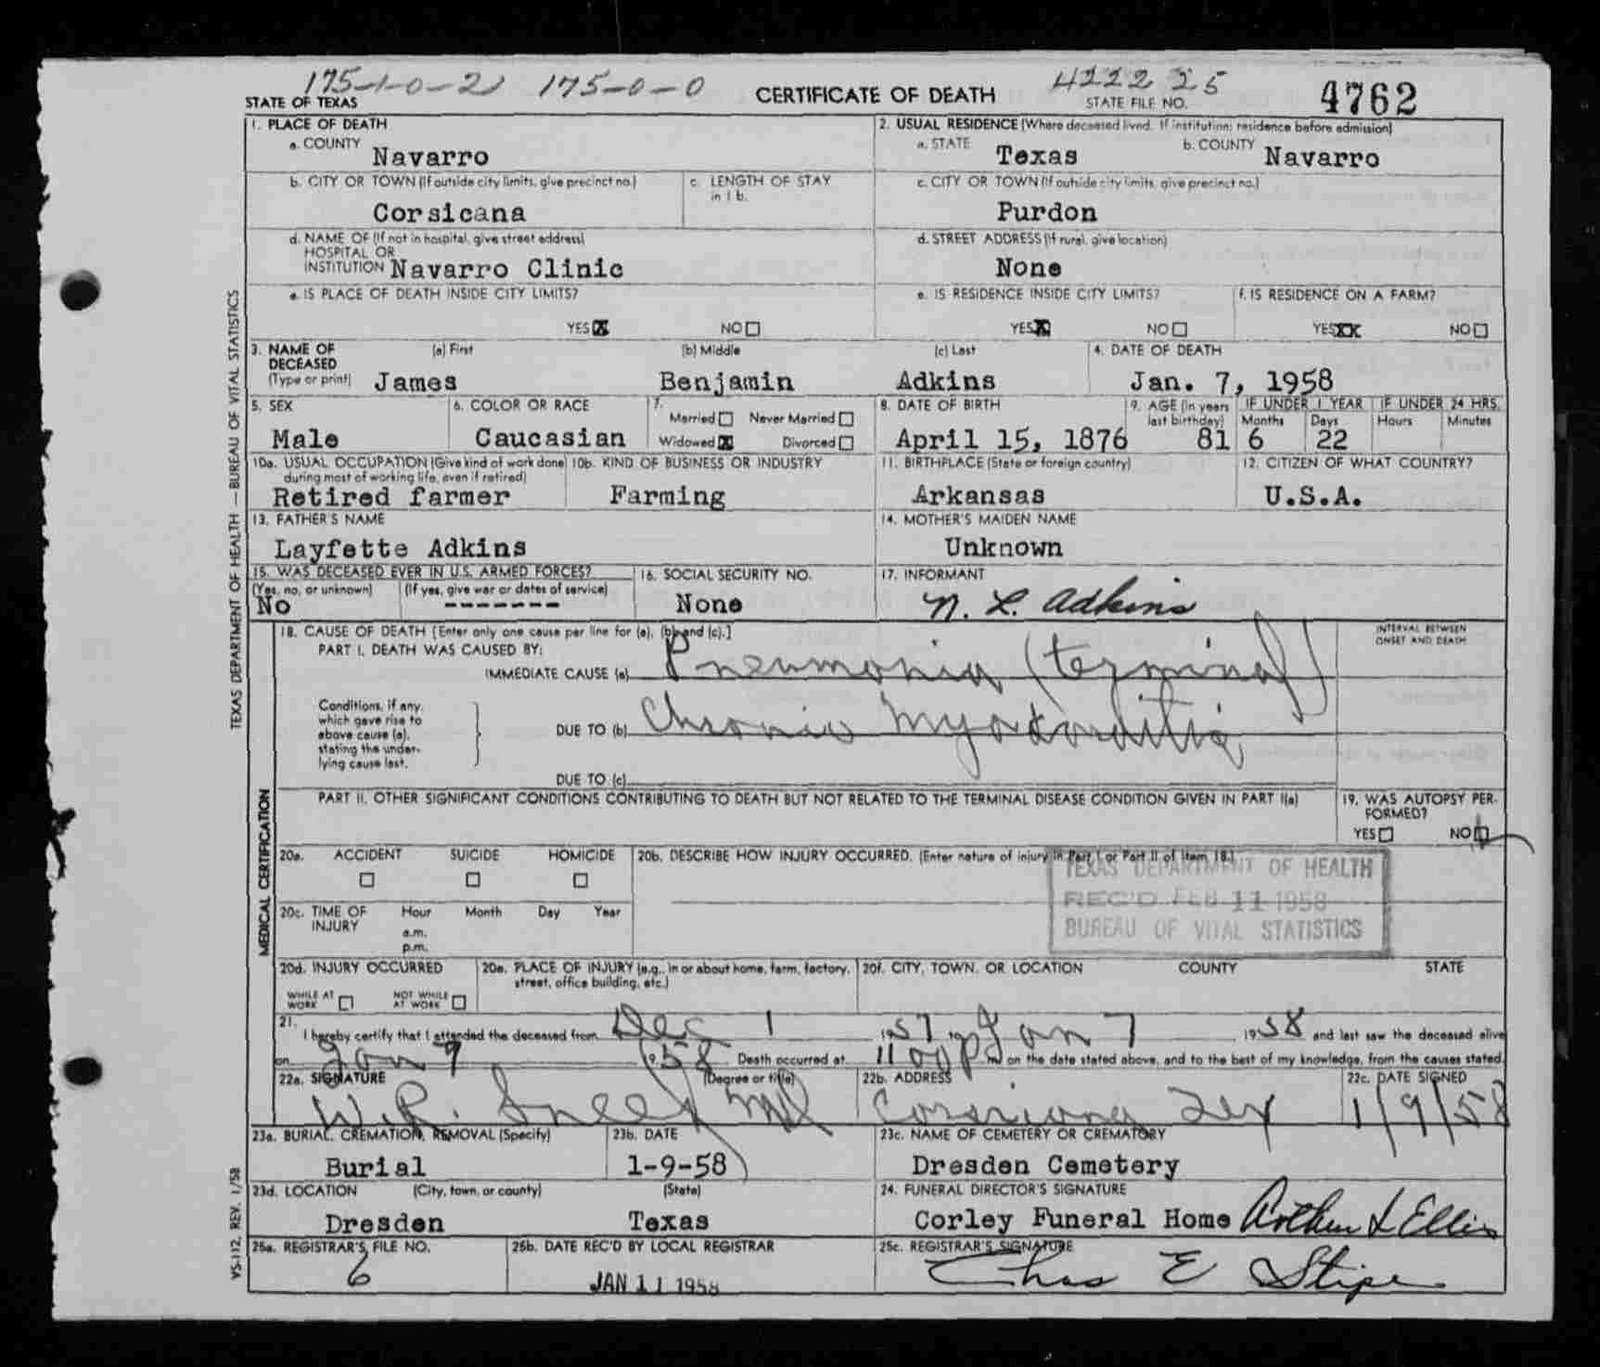 175-1-0-2 175-0-0 4222 25
STATE OF TEXAS CERTIFICATE OF DEATH STATE FILE NO. 4762
1. PLACE OF DEATH
a. COUNTY Navarro
2. USUAL RESIDENCE (Where deceased lived. If institution: residence before admission)
a. STATE Texas b. COUNTY Navarro
b. CITY OR TOWN (If outside city limits, give precinct no.) Corsicana
c. LENGTH OF STAY in 1 b.
c. CITY OR TOWN (If outside city limits, give precinct no.) Purdon
d. NAME OF (If not in hospital, give street address)
HOSPITAL OR
INSTITUTION Navarro Clinic
d. STREET ADDRESS (If rural, give location) None
e. IS PLACE OF DEATH INSIDE CITY LIMITS?
YES X NO
e. IS RESIDENCE INSIDE CITY LIMITS?
YES X NO
f. IS RESIDENCE ON A FARM?
YES XX NO
3. NAME OF DECEASED (Type or print)
(a) First (b) Middle (c) Last
James Benjamin Adkins
4. DATE OF DEATH
Jan. 7, 1958
5. SEX Male
6. COLOR OR RACE Caucasian
7. Married Never Married
Widowed X Divorced
8. DATE OF BIRTH April 15, 1876
9. AGE (In years last birthday) 81
IF UNDER 1 YEAR Months 6 Days 22
IF UNDER 24 HRS. Hours Minutes
10a. USUAL OCCUPATION (Give kind of work done during most of working life, even if retired)
Retired farmer
10b. KIND OF BUSINESS OR INDUSTRY
Farming
11. BIRTHPLACE (State or foreign country)
Arkansas
12. CITIZEN OF WHAT COUNTRY?
U.S.A.
13. FATHER'S NAME
Layfette Adkins
14. MOTHER'S MAIDEN NAME
Unknown
15. WAS DECEASED EVER IN U.S. ARMED FORCES?
(Yes, no, or unknown) (If yes, give war or dates of service)
No -------
16. SOCIAL SECURITY NO.
None
17. INFORMANT
N. L. Adkins
18. CAUSE OF DEATH [Enter only one cause per line for (a), (b) and (c).]
INTERVAL BETWEEN ONSET AND DEATH
PART I. DEATH WAS CAUSED BY:
IMMEDIATE CAUSE (a) Pneumonia (terminal)
Conditions, if any, which gave rise to above cause (a), stating the underlying cause last.
DUE TO (b) Chronic Myocarditis
DUE TO (c)
PART II. OTHER SIGNIFICANT CONDITIONS CONTRIBUTING TO DEATH BUT NOT RELATED TO THE TERMINAL DISEASE CONDITION GIVEN IN PART I(a)
19. WAS AUTOPSY PERFORMED?
YES NO
20a. ACCIDENT SUICIDE HOMICIDE
20b. DESCRIBE HOW INJURY OCCURRED. (Enter nature of injury in Part I or Part II of item 18.)
TEXAS DEPARTMENT OF HEALTH
REC'D FEB 11 1958
BUREAU OF VITAL STATISTICS
20c. TIME OF INJURY Hour Month Day Year
a.m.
p.m.
20d. INJURY OCCURRED
WHILE AT WORK NOT WHILE AT WORK
20e. PLACE OF INJURY (e.g., in or about home, farm, factory, street, office building, etc.)
20f. CITY, TOWN, OR LOCATION COUNTY STATE
21. I hereby certify that I attended the deceased from Dec 1 1957, to Jan 7 1958 and last saw the deceased alive
on Jan 7 1958 Death occurred at 1100 p m on the date stated above, and to the best of my knowledge, from the causes stated.
22a. SIGNATURE (Degree or title)
W.R. Sneed MD
22b. ADDRESS
Corsicana Tex
22c. DATE SIGNED
1/9/58
23a. BURIAL, CREMATION, REMOVAL (Specify)
Burial
23b. DATE
1-9-58
23c. NAME OF CEMETERY OR CREMATORY
Dresden Cemetery
23d. LOCATION (City, town, or county) (State)
Dresden Texas
24. FUNERAL DIRECTOR'S SIGNATURE
Corley Funeral Home Arthur L Ellis
25a. REGISTRAR'S FILE NO.
6
25b. DATE REC'D BY LOCAL REGISTRAR
JAN 11 1958
25c. REGISTRAR'S SIGNATURE
Chas E Stipe
TEXAS DEPARTMENT OF HEALTH — BUREAU OF VITAL STATISTICS
MEDICAL CERTIFICATION
VS-112, REV. 1/58